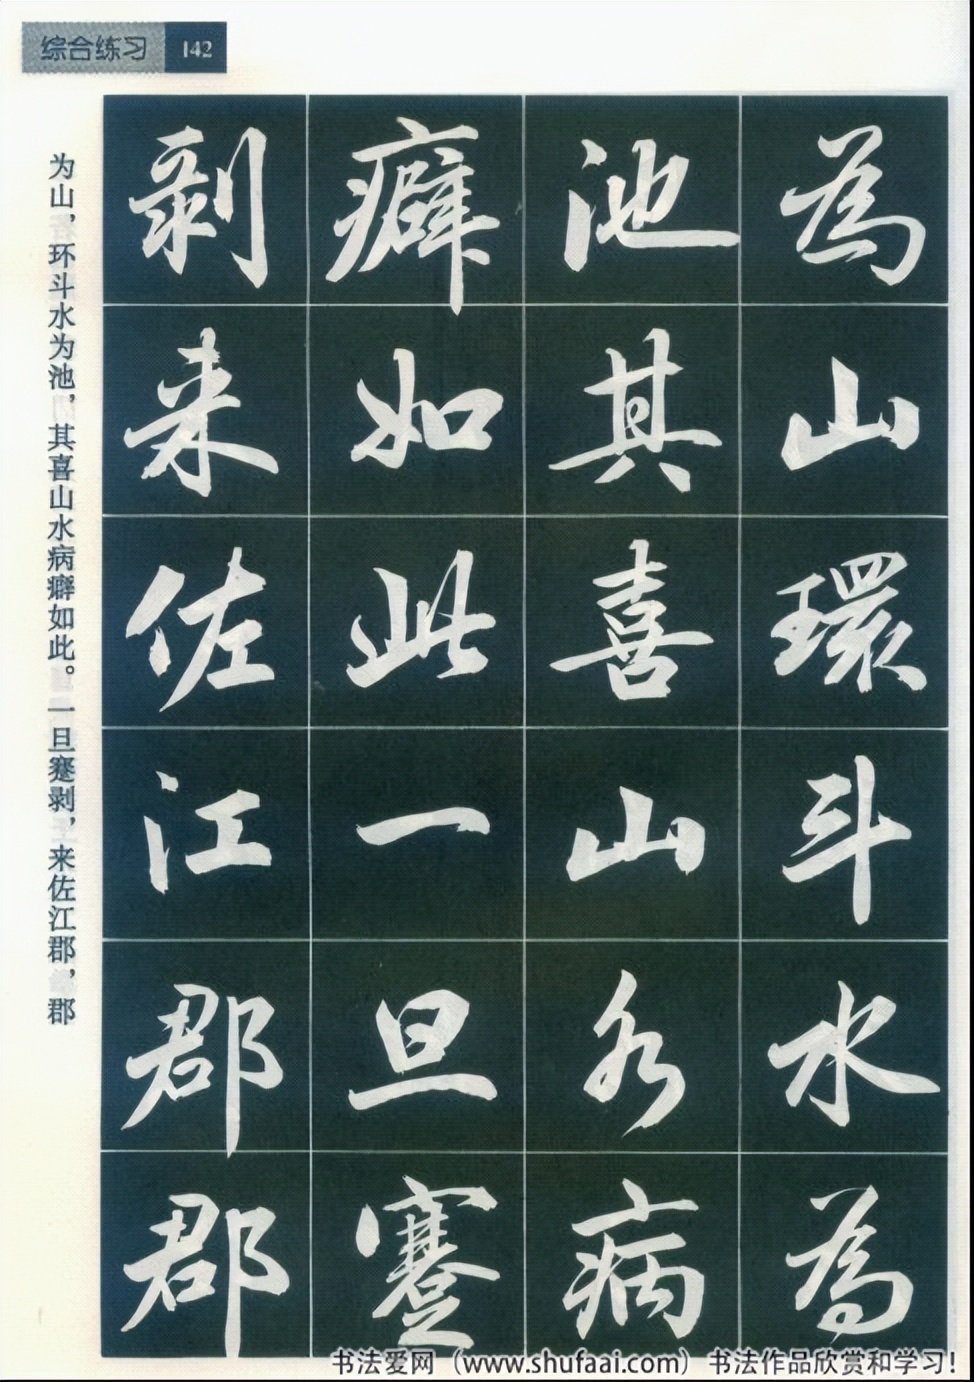 综合练习 142
為山環斗水為
池其喜山水病
癖如此一旦蹇
剥来佐江郡郡
为山，环斗水为池，其喜山水病癖如此。一旦蹇剥，来佐江郡，郡
书法爱网（www.shufaai.com）书法作品欣赏和学习！